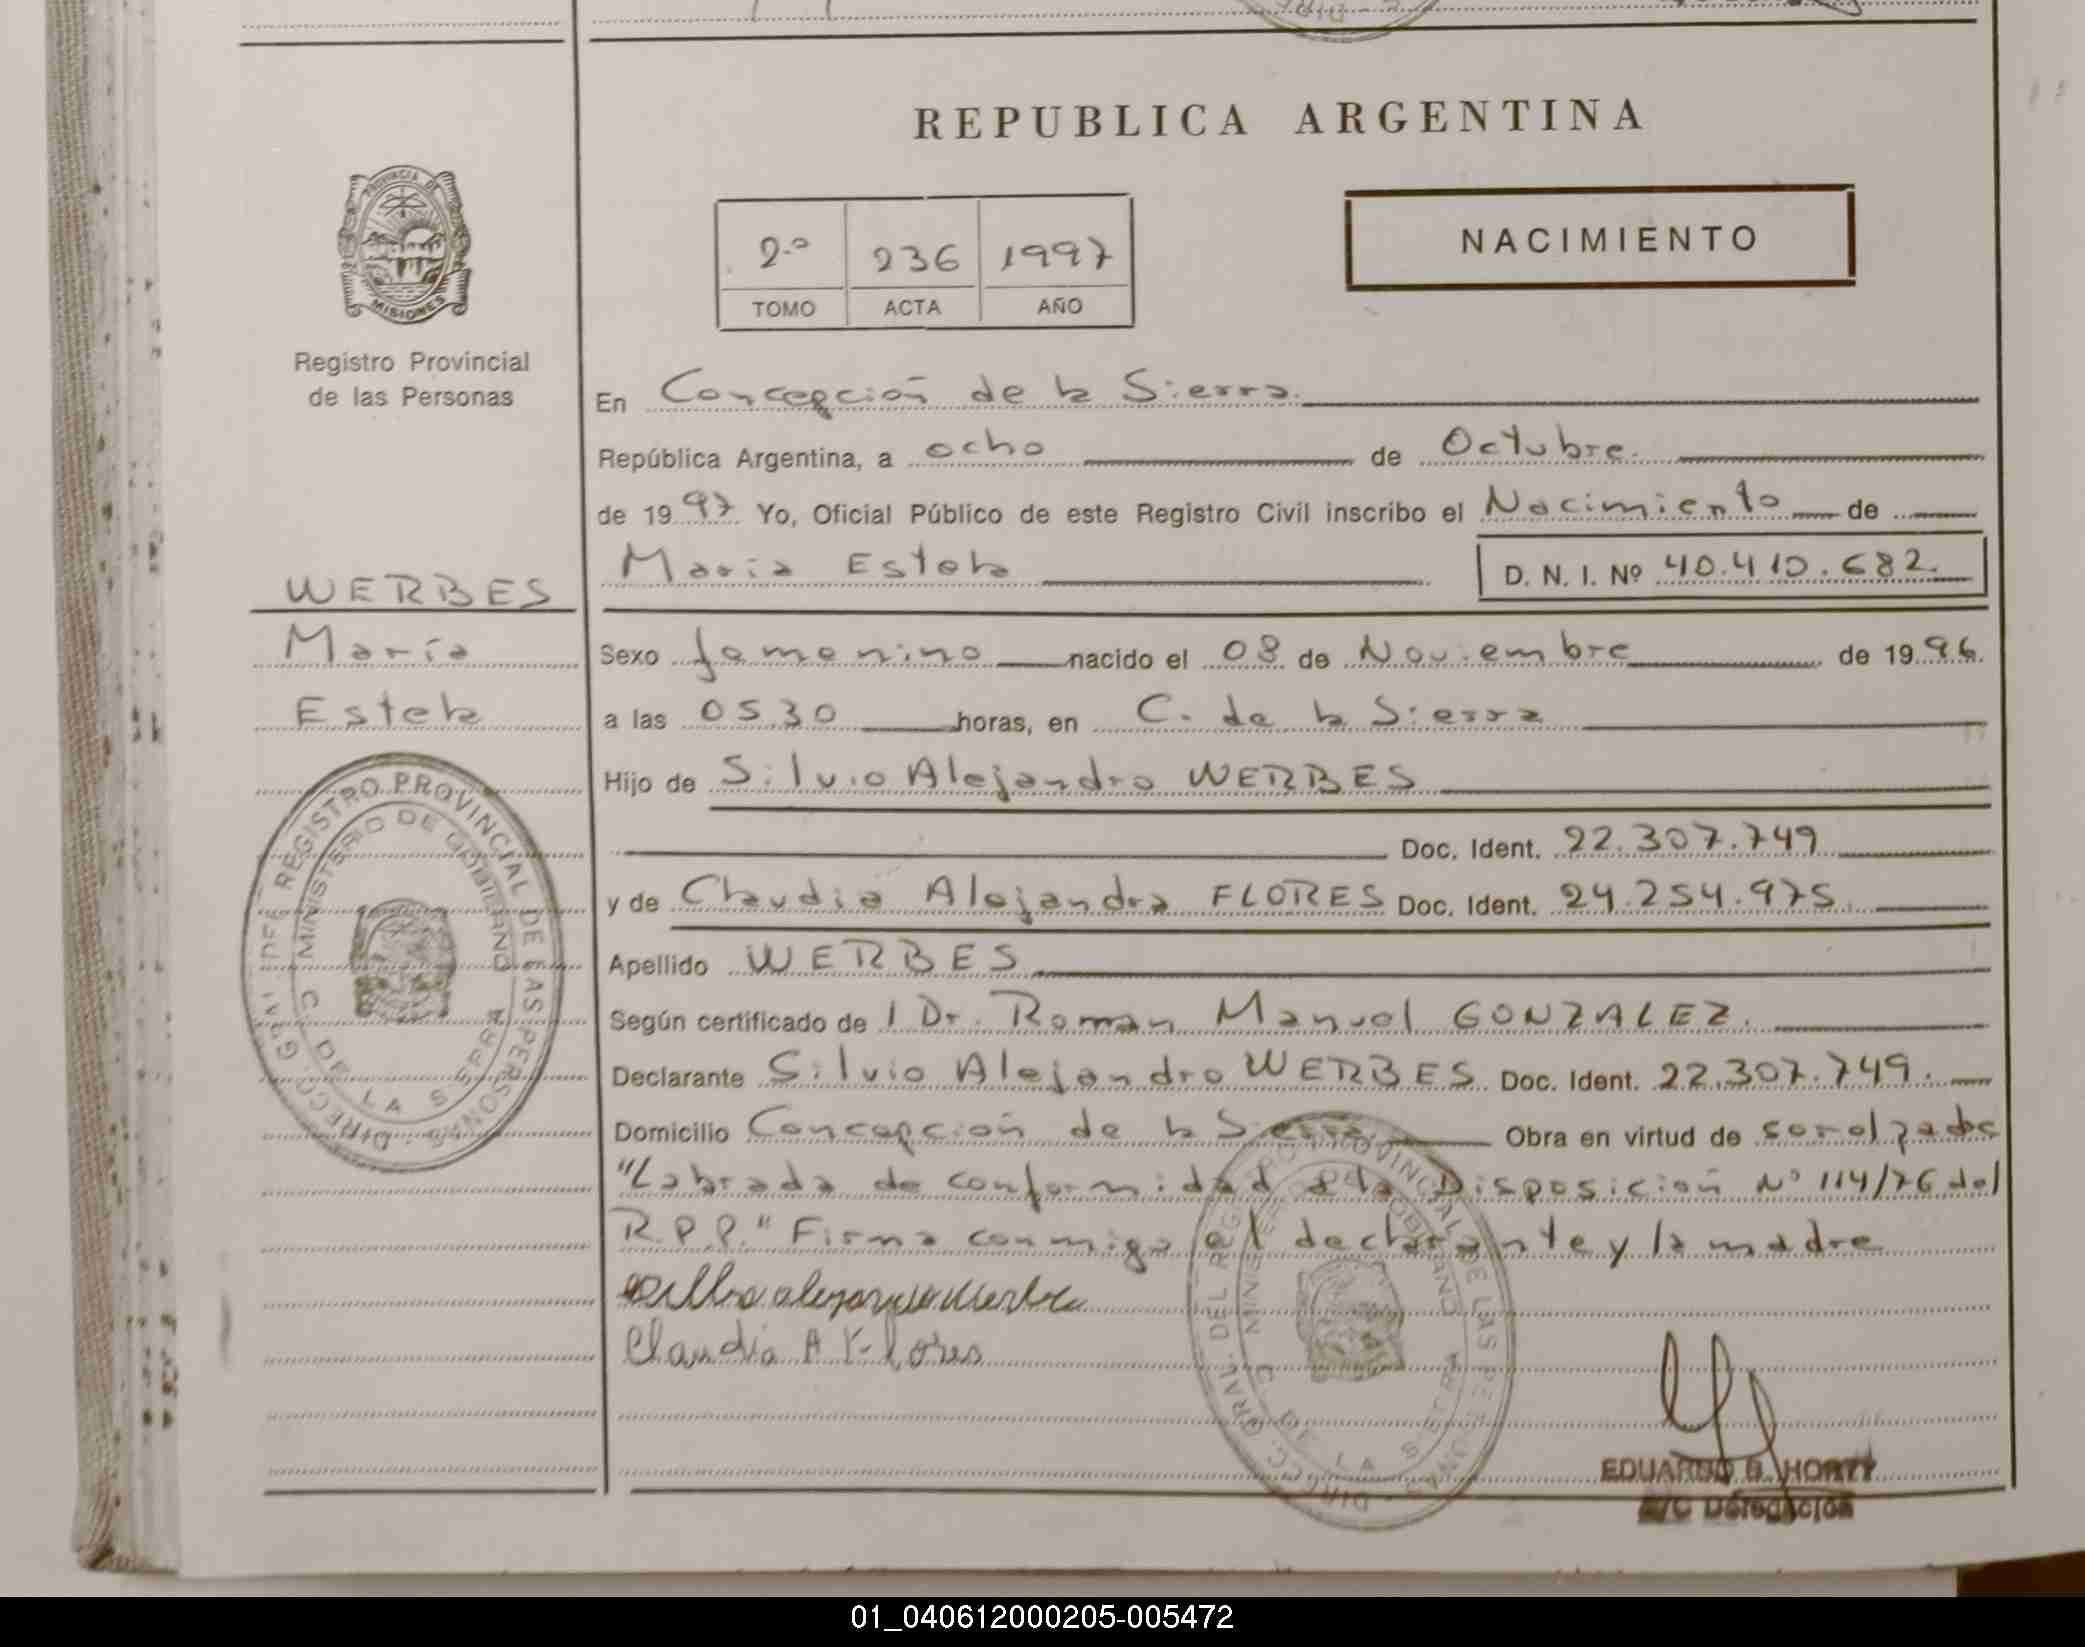 REPUBLICA ARGENTINA
PROVINCIA DE
MISIONES
Registro Provincial
de las Personas
2.º 236 1997
TOMO ACTA AÑO
NACIMIENTO
En Concepción de la Sierra.
República Argentina, a ocho de Octubre.
de 1997 Yo, Oficial Público de este Registro Civil inscribo el Nacimiento de
María Estela D. N. I. Nº 40.410.682.
WERBES
María
Estela
Sexo femenino nacido el 08 de Noviembre de 1996.
a las 05.30 horas, en C. de la Sierra
Hijo de Silvio Alejandro WERBES
Doc. Ident. 22.307.749
y de Claudia Alejandra FLORES Doc. Ident. 24.254.975.
Apellido WERBES
Según certificado de l Dr. Roman Manuel GONZALEZ.
Declarante Silvio Alejandro WERBES Doc. Ident. 22.307.749.
Domicilio Concepción de la Sierra Obra en virtud de
"Labrada de conformidad a la Disposición Nº 114/76 del
R.P.P." Firma conmigo el declarante y la madre
Claudia A Flores
DIRECC. GRAL. DEL REGISTRO PROVINCIAL DE LAS PERSONAS
MINISTERIO DE GOBIERNO
C. DE LA SIERRA
DIRECC. GRAL. DEL REGISTRO PROVINCIAL DE LAS PERSONAS
MINISTERIO DE GOBIERNO
C. DE LA SIERRA
EDUARDO B. HORTT
A/C Delegación
01_040612000205-005472